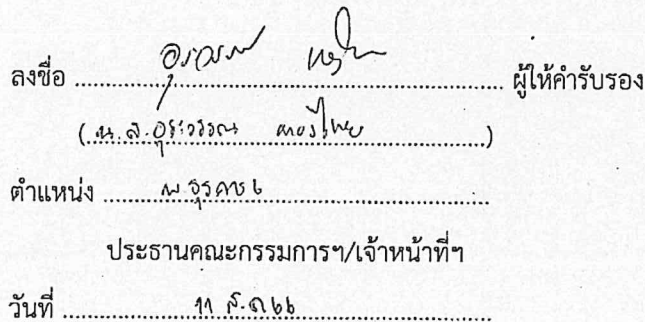 ลงชื่อ ............ ผู้ให้คำรับรอง
(น.ส.อุระวรรณ ทองไทย)
ตำแหน่ง พ.ธุรการ 6
ประธานคณะกรรมการฯ/เจ้าหน้าที่ฯ
วันที่ 11 ส.ค 66